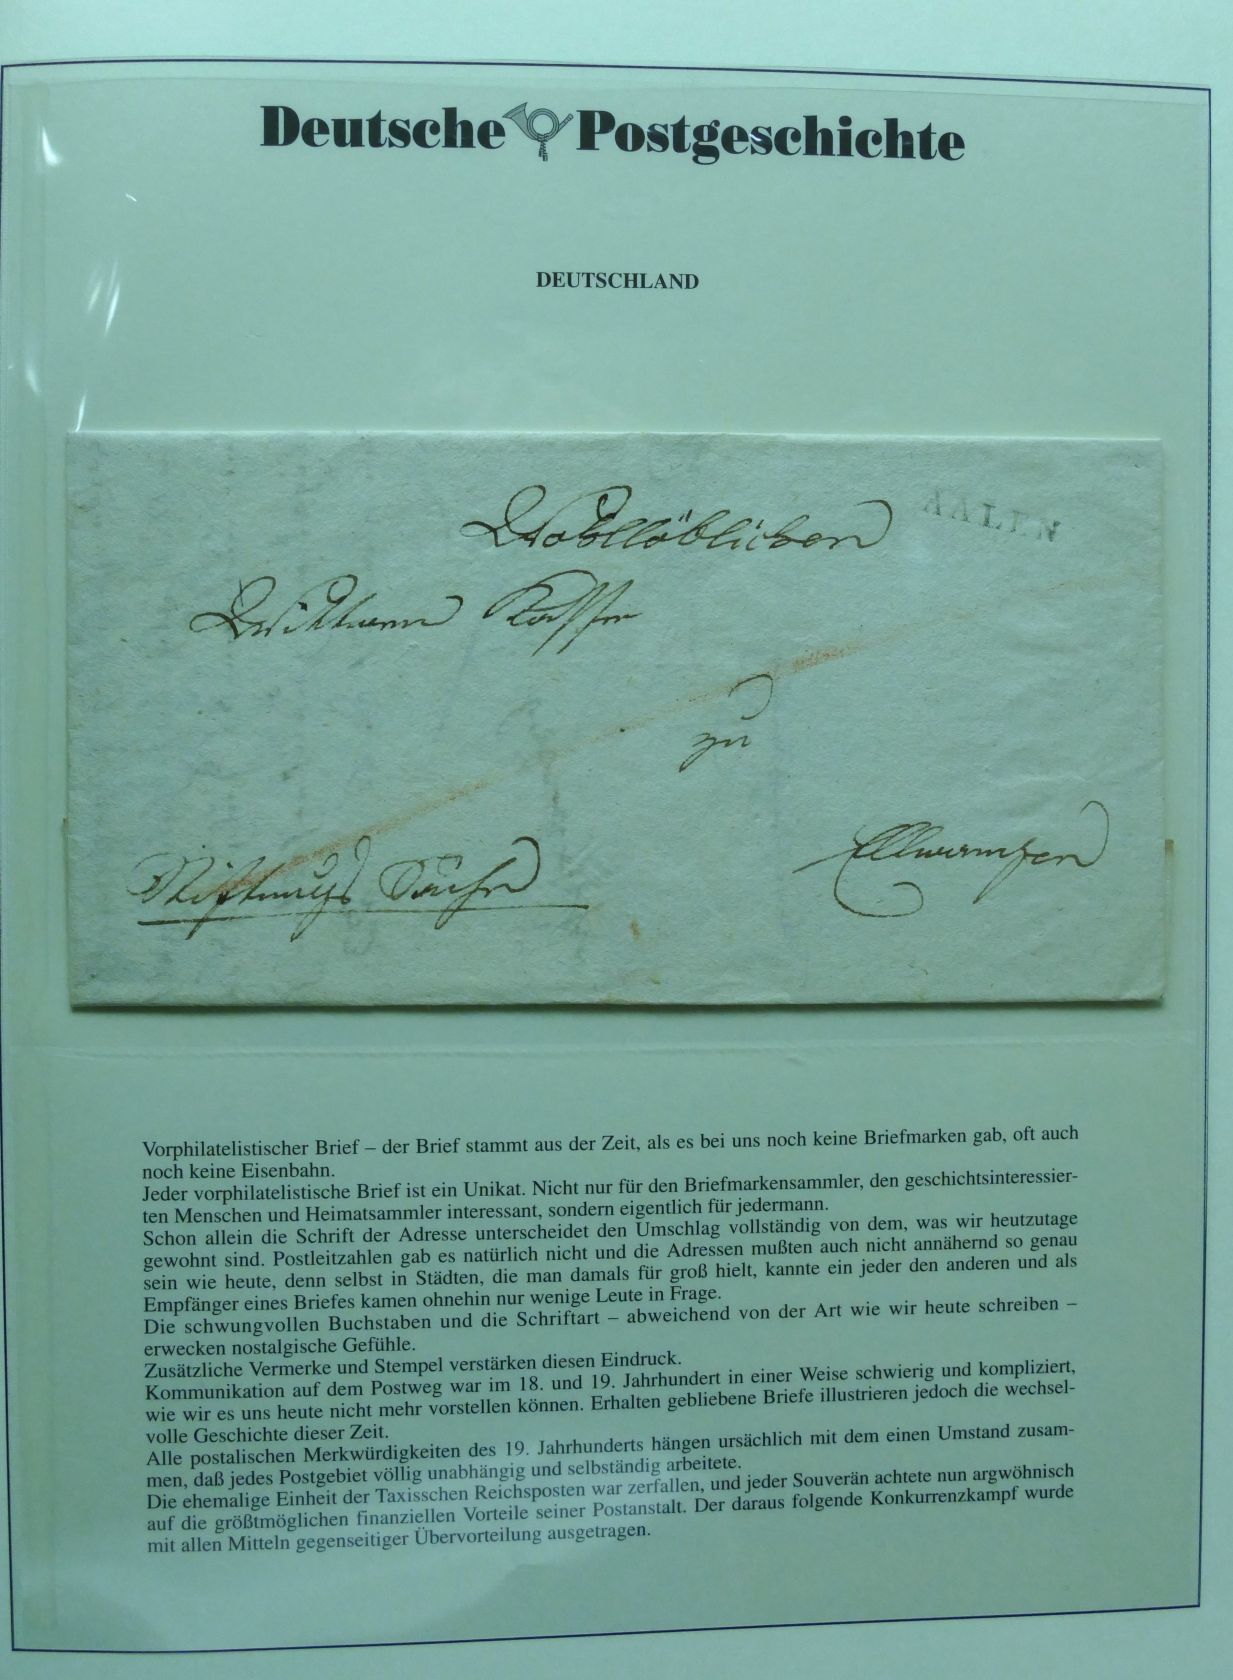 Deutsche Postgeschichte
DEUTSCHLAND
AALEN
Wohllöblichen
Wittwen Kasse
zu
Stiftungs Sache
Ellwangen
Vorphilatelistischer Brief – der Brief stammt aus der Zeit, als es bei uns noch keine Briefmarken gab, oft auch
noch keine Eisenbahn.
Jeder vorphilatelistische Brief ist ein Unikat. Nicht nur für den Briefmarkensammler, den geschichtsinteressier-
ten Menschen und Heimatsammler interessant, sondern eigentlich für jedermann.
Schon allein die Schrift der Adresse unterscheidet den Umschlag vollständig von dem, was wir heutzutage
gewohnt sind. Postleitzahlen gab es natürlich nicht und die Adressen mußten auch nicht annähernd so genau
sein wie heute, denn selbst in Städten, die man damals für groß hielt, kannte ein jeder den anderen und als
Empfänger eines Briefes kamen ohnehin nur wenige Leute in Frage.
Die schwungvollen Buchstaben und die Schriftart – abweichend von der Art wie wir heute schreiben –
erwecken nostalgische Gefühle.
Zusätzliche Vermerke und Stempel verstärken diesen Eindruck.
Kommunikation auf dem Postweg war im 18. und 19. Jahrhundert in einer Weise schwierig und kompliziert,
wie wir es uns heute nicht mehr vorstellen können. Erhalten gebliebene Briefe illustrieren jedoch die wechsel-
volle Geschichte dieser Zeit.
Alle postalischen Merkwürdigkeiten des 19. Jahrhunderts hängen ursächlich mit dem einen Umstand zusam-
men, daß jedes Postgebiet völlig unabhängig und selbständig arbeitete.
Die ehemalige Einheit der Taxisschen Reichsposten war zerfallen, und jeder Souverän achtete nun argwöhnisch
auf die größtmöglichen finanziellen Vorteile seiner Postanstalt. Der daraus folgende Konkurrenzkampf wurde
mit allen Mitteln gegenseitiger Übervorteilung ausgetragen.